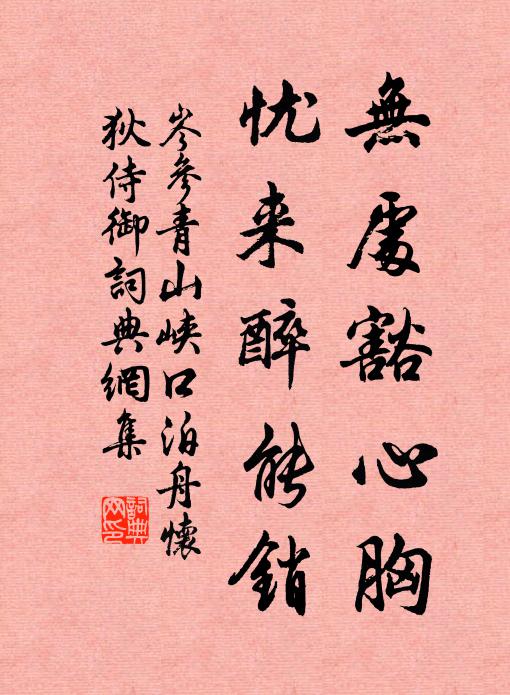 無處豁心胸
忧来醉能銷
岑參青山峽口泊舟懷
狄侍御詞典網集
詞典网印